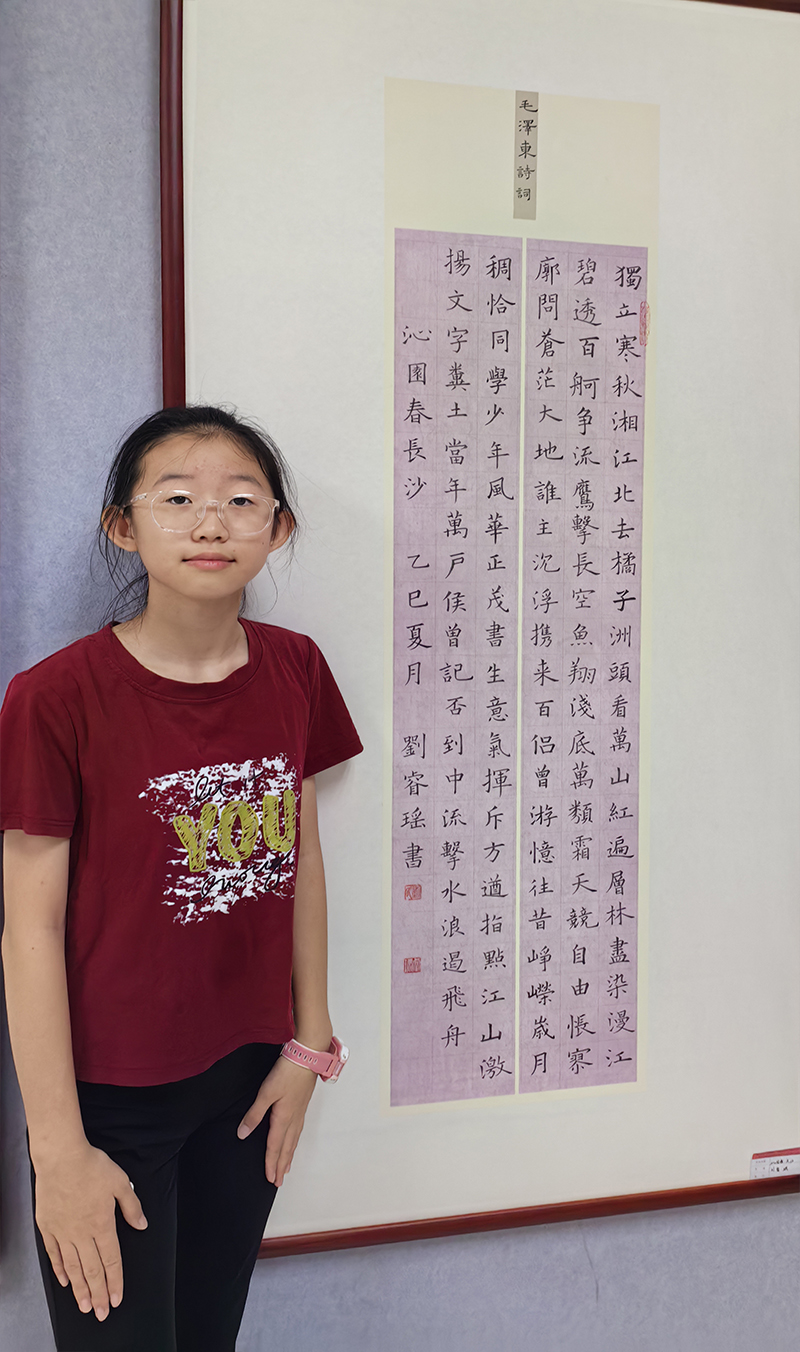 毛澤東詩詞
獨立寒秋湘江北去橘子洲頭看萬山紅遍層林盡染漫江
碧透百舸争流鷹擊長空魚翔淺底萬類霜天競自由悵寥
廓問蒼茫大地誰主沉浮携来百侣曾游憶往昔崢嶸歲月
稠恰同學少年風華正茂書生意氣揮斥方遒指點江山激
揚文字糞土當年萬戶侯曾記否到中流擊水浪遏飛舟
沁園春長沙 乙巳夏月 劉睿瑶書
let it
YOU